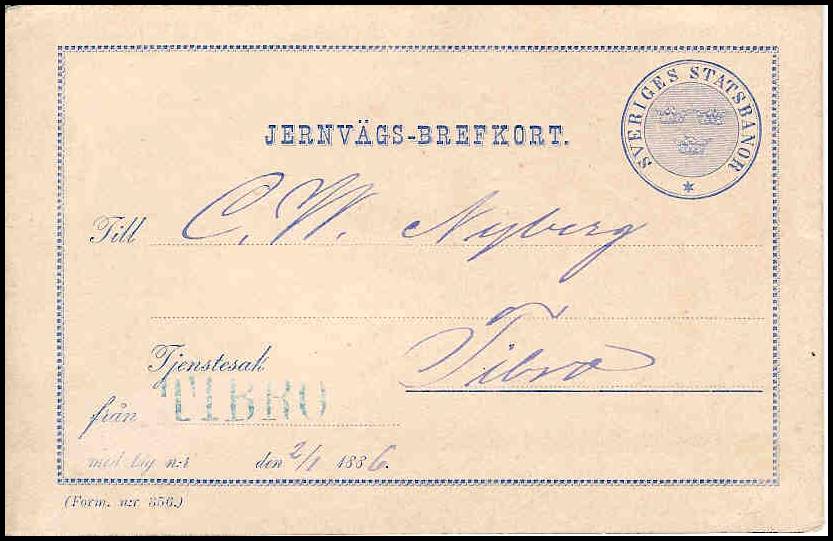 SVERIGES STATSBANOR
JERNVÄGS-BREFKORT.
Till C. W. Nyberg
Tibro
Tjenstesak
från TIBRO
med tåg n:r den 2/1 1886.
(Form. n:r 356.)